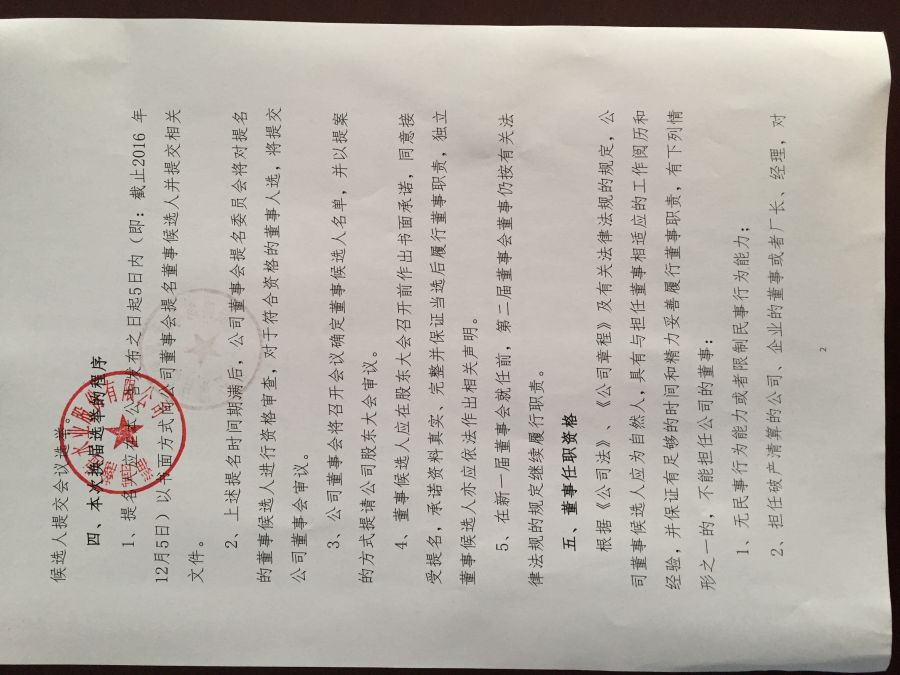 候选人提交会议选举。
四、本次换届选举的程序
1、提名人应在本公告发布之日起5日内（即：截止2016 年
12月5日）以书面方式向公司董事会提名董事候选人并提交相关
文件。
2、上述提名时间期满后，公司董事会提名委员会将对提名
的董事候选人进行资格审查，对于符合资格的董事人选，将提交
公司董事会审议。
3、公司董事会将召开会议确定董事候选人名单，并以提案
的方式提请公司股东大会审议。
4、董事候选人应在股东大会召开前作出书面承诺，同意接
受提名，承诺资料真实、完整并保证当选后履行董事职责，独立
董事候选人亦应依法作出相关声明。
5、在新一届董事会就任前，第二届董事会董事仍按有关法
律法规的规定继续履行职责。
五、董事任职资格
根据《公司法》、《公司章程》及有关法律法规的规定，公
司董事候选人应为自然人，具有与担任董事相适应的工作阅历和
经验，并保证有足够的时间和精力妥善履行董事职责，有下列情
形之一的，不能担任公司的董事：
1、无民事行为能力或者限制民事行为能力；
2、担任破产清算的公司、企业的董事或者厂长、经理，对
2